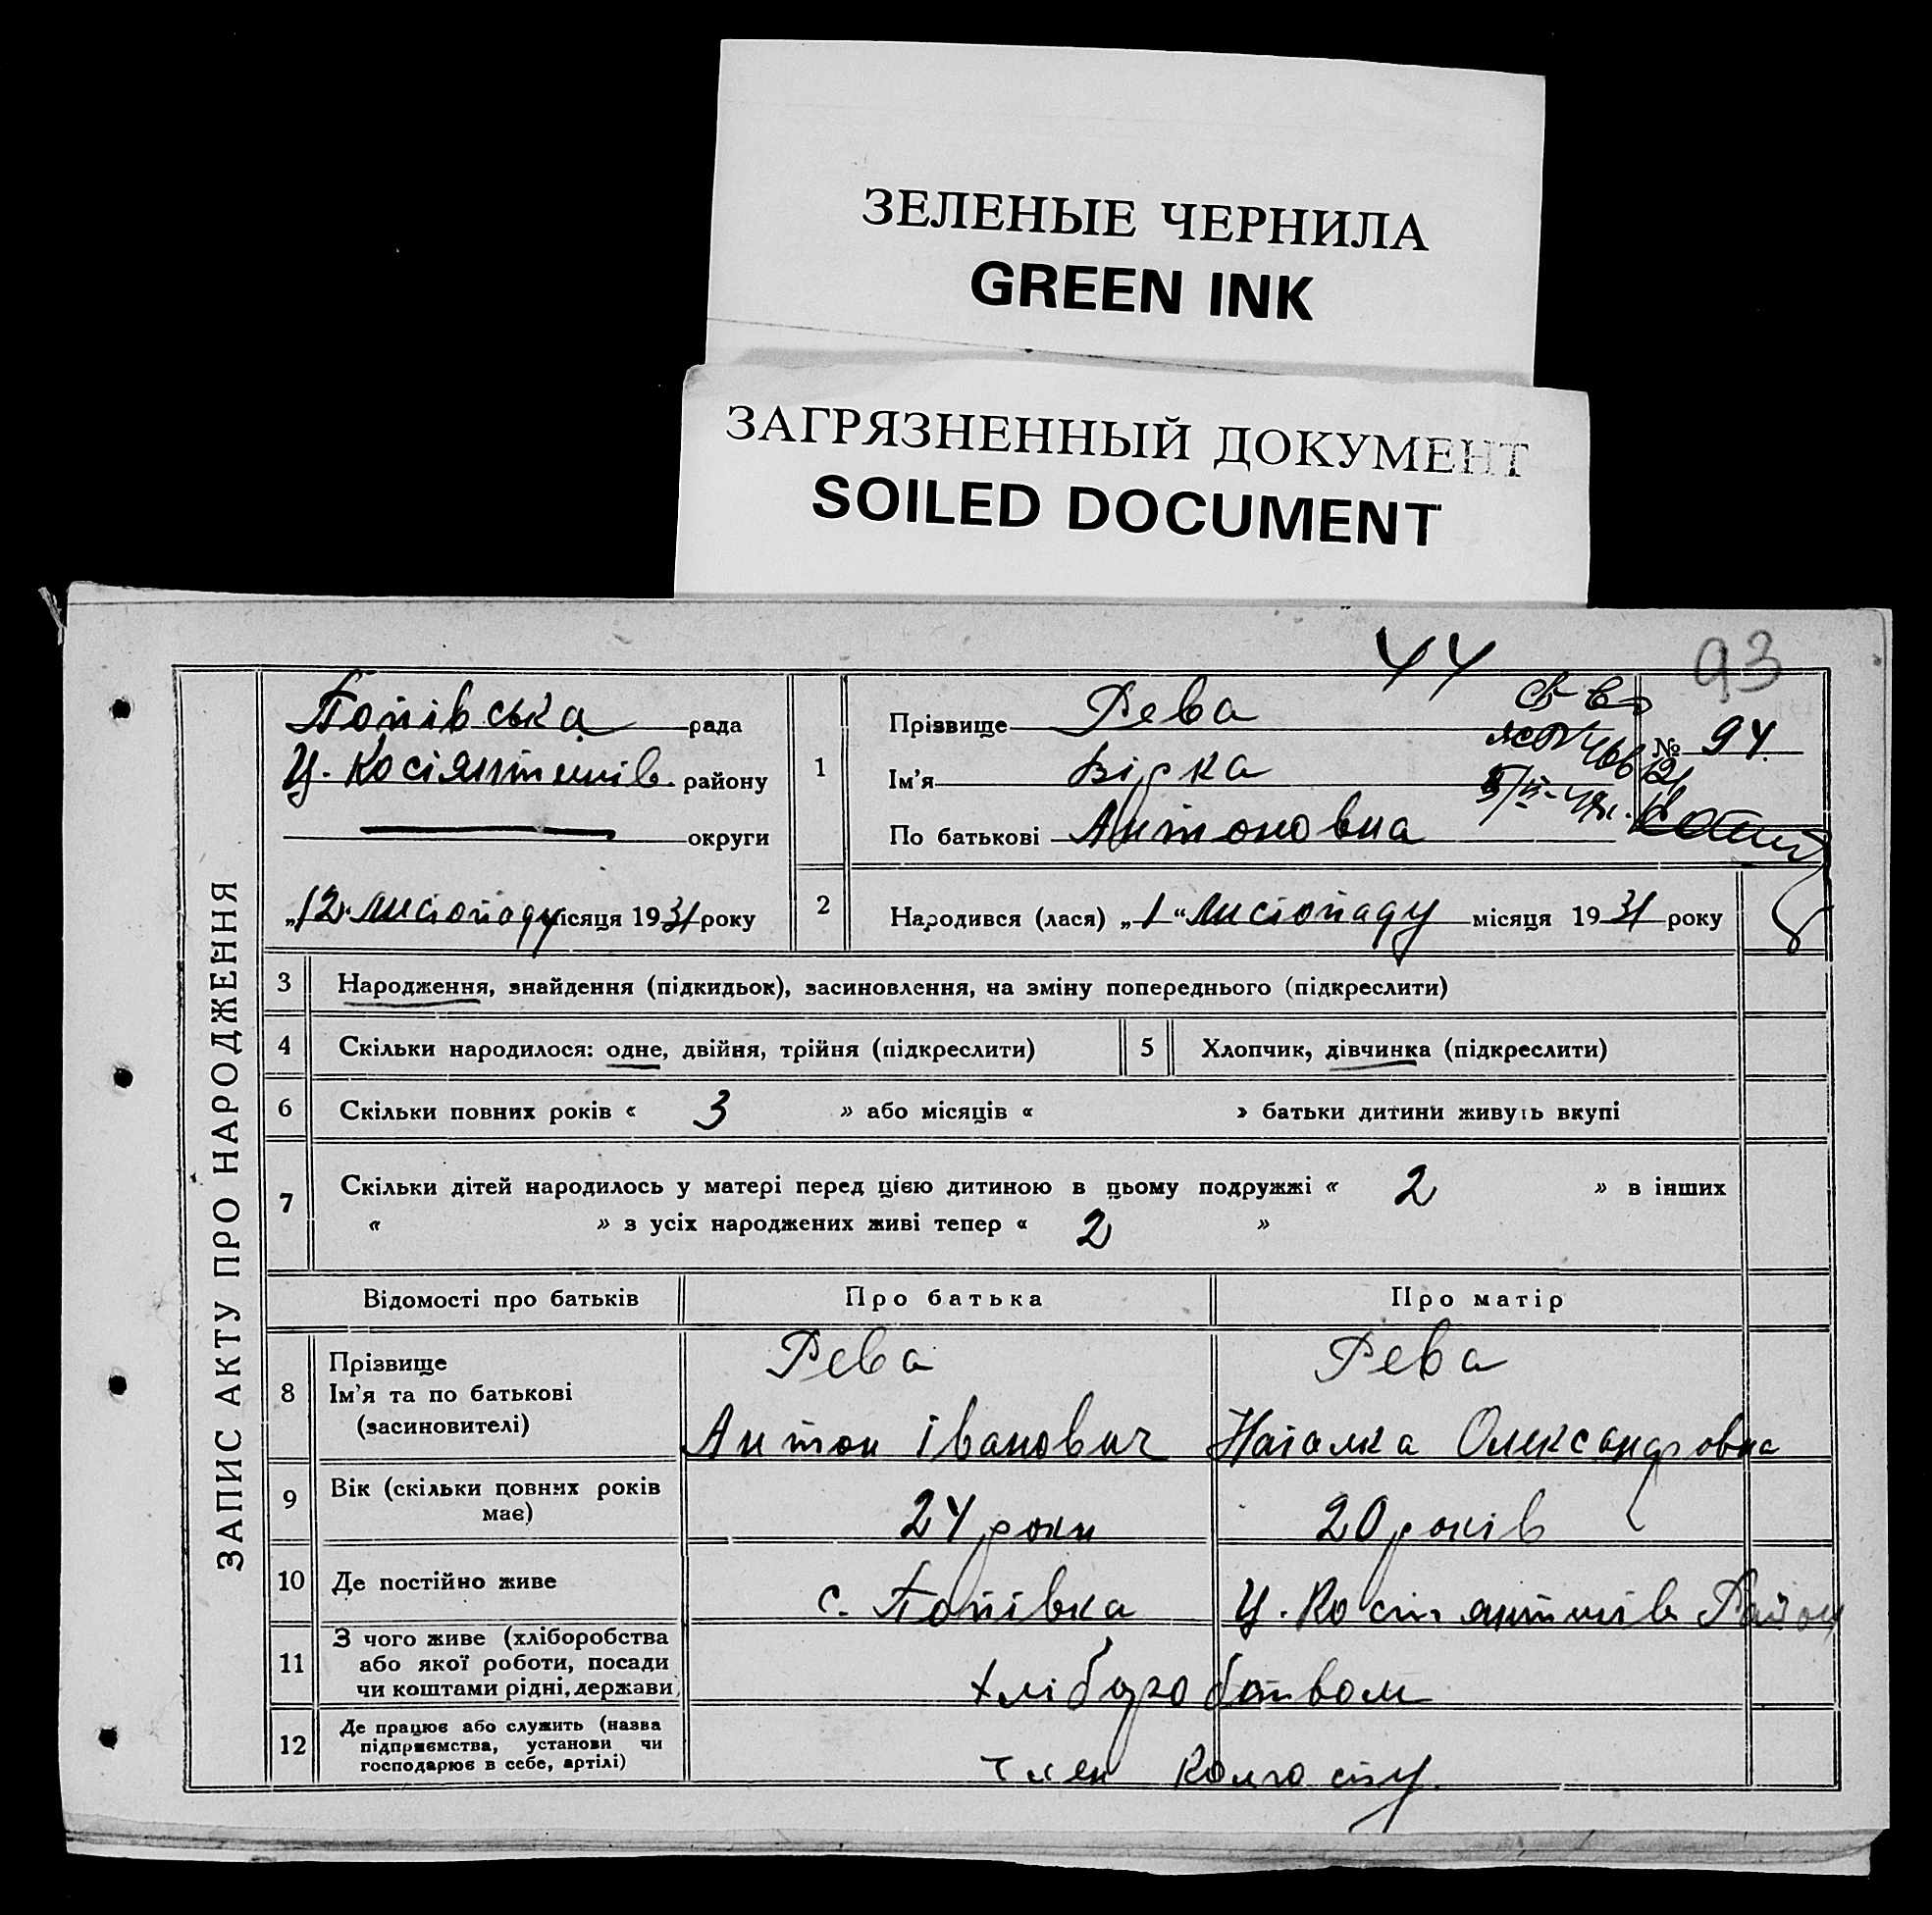 ЗЕЛЕНЫЕ ЧЕРНИЛА
GREEN INK
ЗАГРЯЗНЕННЫЙ ДОКУМЕНТ
SOILED DOCUMENT
44
93
ЗАПИС АКТУ ПРО НАРОДЖЕННЯ
Попівська рада
району
округи
„12“ листопаду місяця 1931 року
1
Прізвище Рева
Ім'я Вірка
По батькові Антоновна
№ 94
2
Народився (лася) „1“ листопаду місяця 1931 року
3 Народження, знайдення (підкидьок), засиновлення, на зміну попереднього (підкреслити)
4 Скільки народилося: одне, двійня, трійня (підкреслити)
5 Хлопчик, дівчинка (підкреслити)
6 Скільки повних років « 3 » або місяців « » батьки дитини живуть вкупі
7 Скільки дітей народилось у матері перед цією дитиною в цьому подружжі « 2 » в інших
« » з усіх народжених живі тепер « 2 »
Відомості про батьків
Про батька
Про матір
8 Прізвище
Ім'я та по батькові
(засиновителі)
Рева
Антон Іванович
Рева
Наталка Олександровна
9 Вік (скільки повних років
має)
24 роки
20 років
10 Де постійно живе
с. Попівка
Район
11 З чого живе (хліборобства
або якої роботи, посади
чи коштами рідні, держави
хліборобством
12 Де працює або служить (назва
підприємства, установи чи
господарює в себе, артілі)
член колгоспу.